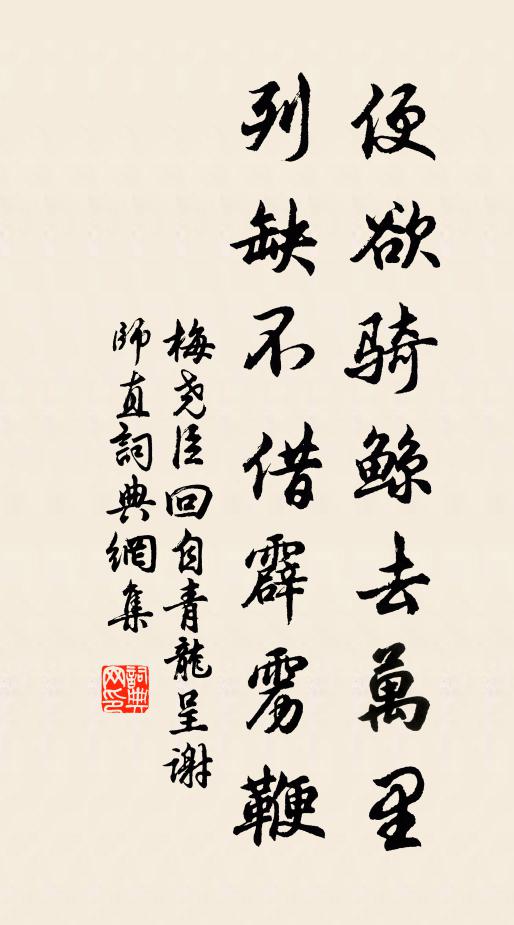 便欲骑鲸去萬里
列缺不借霹雳鞭
梅尧臣回自青龍呈謝
師直詞典網集
詞典
网印